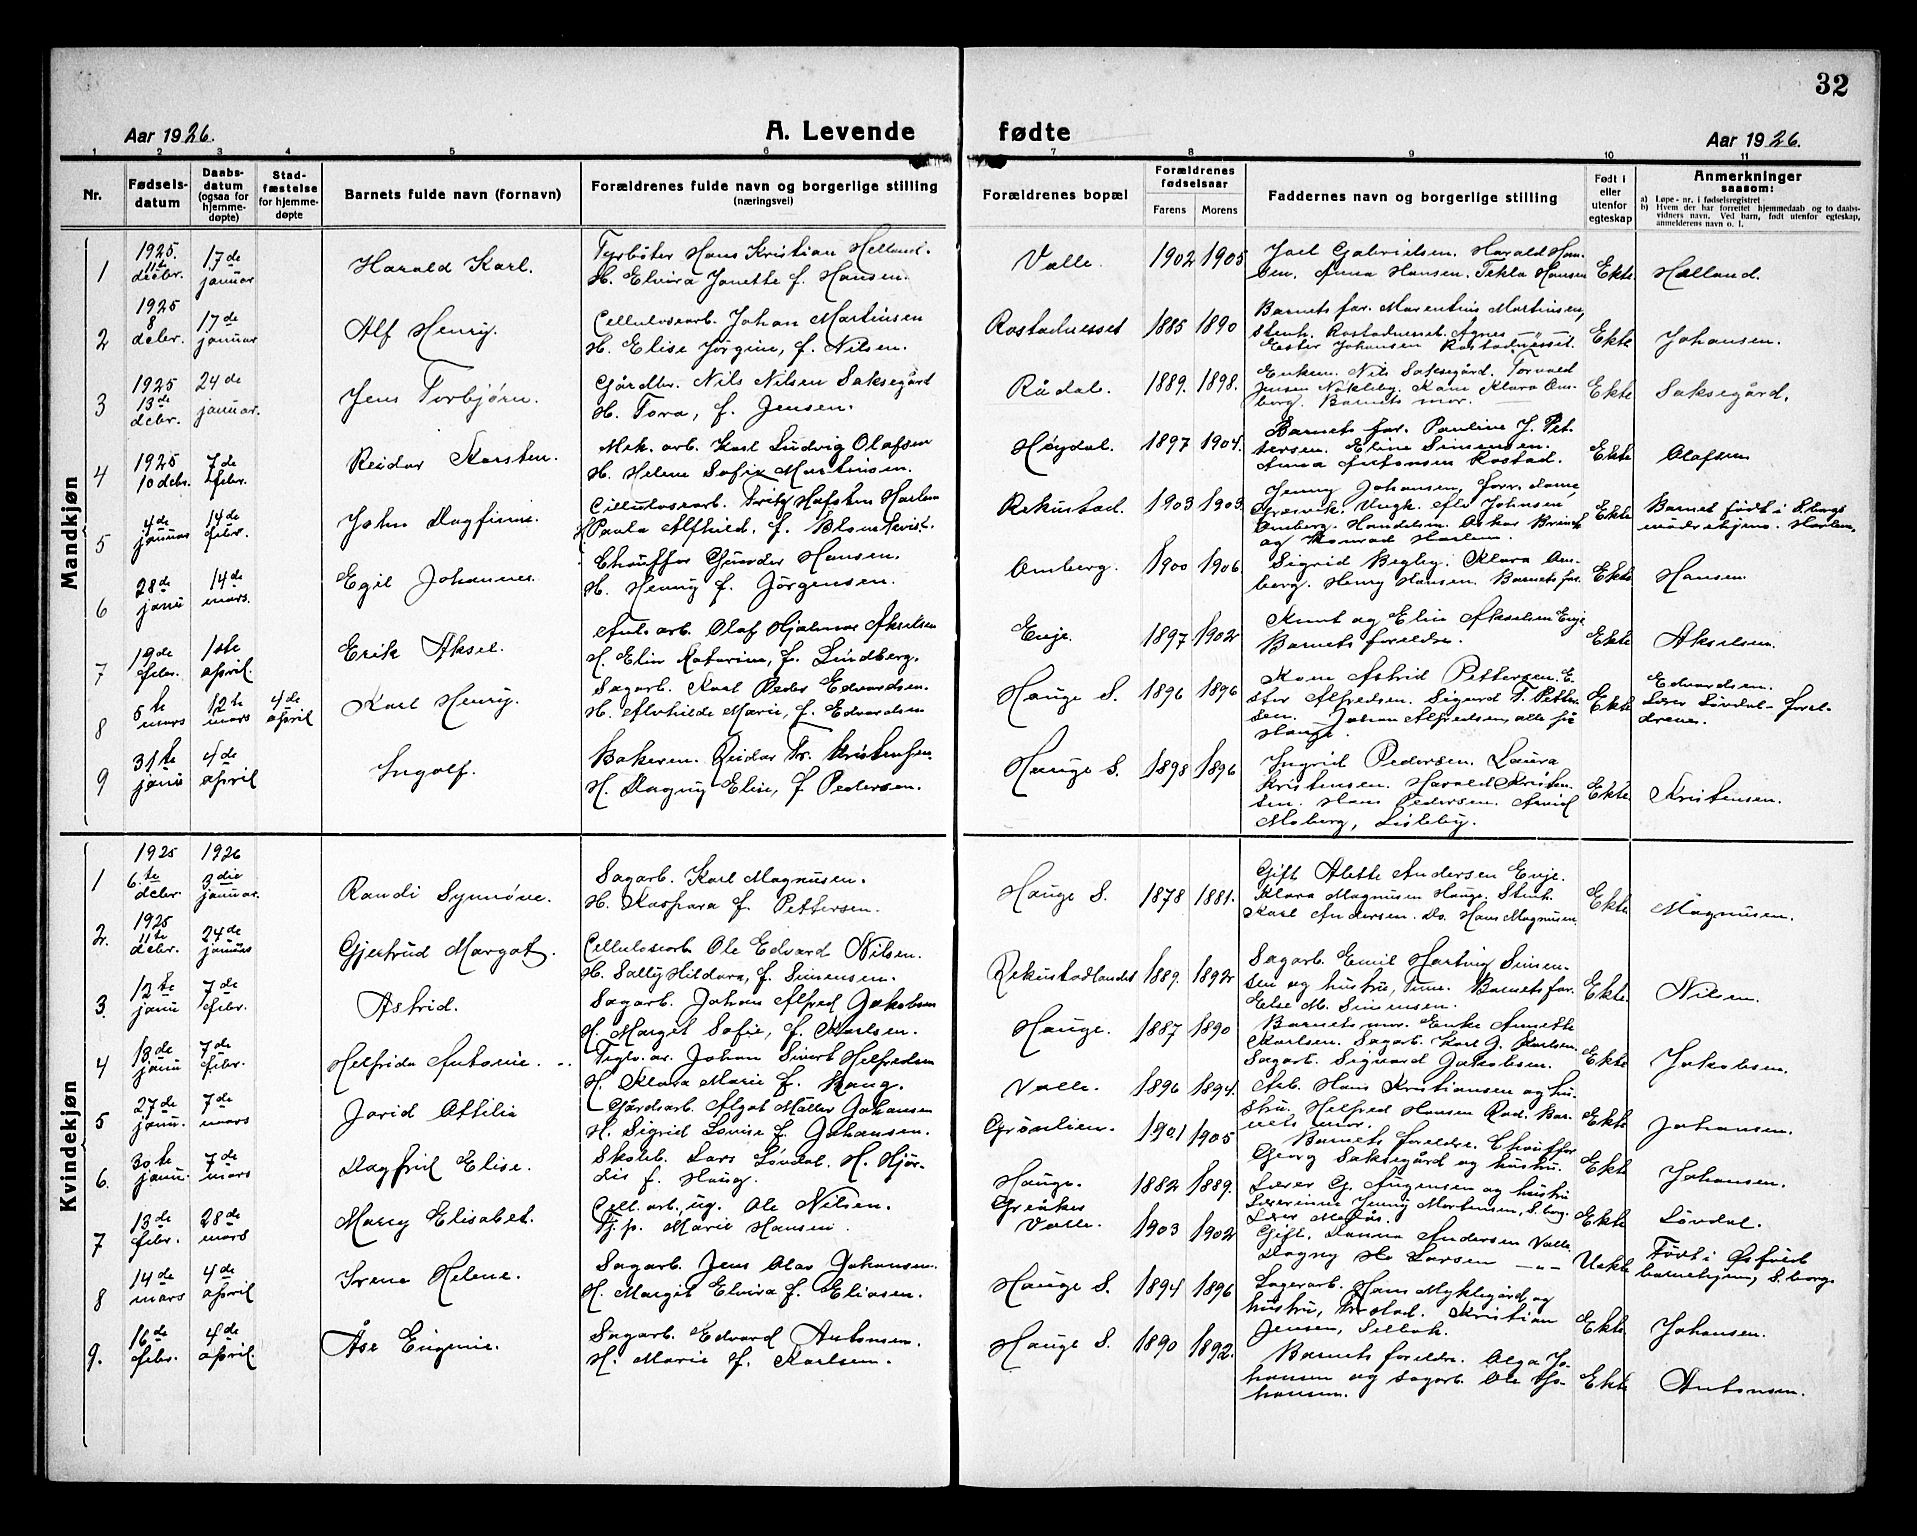 32
Aar 1926.
A. Levende
fødte
Aar 1926.
1 2 3 4 5 6 7 8 9 10 11
Nr.
Fødsels-
datum
Daabs-
datum
(ogsaa for
hjemme-
døpte)
Stad-
fæstelse
for hjemme-
døpte
Barnets fulde navn (fornavn)
Forældrenes fulde navn og borgerlige stilling
(næringsvei)
Forældrenes bopæl
Forældrenes
fødselsaar
Farens Morens
Faddernes navn og borgerlige stilling
Født i
eller
utenfor
egteskap
Anmerkninger
saasom:
a) Løpe-nr. i fødselsregistret
b) Hvem der har forrettet hjemmedaab og to daabs-
vidners navn. Ved barn, født utenfor egteskap,
anmelderens navn o. l.
Mandkjøn
1 1925. 11te decbr. 17de januar Harald Karl. Fyrbøter Hans Kristian Helland.
H. Elvira Janette f. Hansen. Valle. 1902 1905 Joel Gabrielsen. Harald Han-
sen. Anna Hansen. Tekla Hansen Ekte Helland.
2 1925 8 decbr. 17de januar Alf Henry. Cellulosearb. Johan Martinsen
H. Elise Jørgine, f. Nilsen. Rostadnesset 1885 1890 Barnets far. Marentius Martinsen,
Rostadnesset. Agnes — " —
Ester Johansen Rostadnesset. Ekte Johansen.
3 1925 13de decbr. 24de januar. Jens Torbjørn. Gårdbr. Nils Nilsen Saksegård
H. Tora, f. Jensen. Rådal. 1889. 1898. Enkem. Nils Saksegård. Torvald
Jensen Nøkleby. Kone Klara Am-
berg. Barnets mor. Ekte Saksegård.
4 1925 10 decbr. 7de febr. Reidar Karsten. Mek. arb. Karl Ludvig Olafsen
H. Helene Sofie Martinsen. Høydal. 1897 1904. Barnets far. Pauline J. Pet-
tersen. Eline Simensen.
Anna Antonsen Rostad. Ekte Olafsen
5 4de januar 14de febr. John Dagfinn. Cellulosearb. Fritz Hafsten Harlem
H. Paula Alfhild. f. Blomkvist. Rekustad. 1903 1903 Jenny Johansen, forr. dame,
Græsvik. Ungk. Alv Johnsen
Amberg. Handelsm. Oskar
og Konrad Harlem. Ekte Barnet født i S.borgs
mødrehjem. Harlem.
6 28de janu 14de mars. Egil Johannes. Chauffør Gunder Hansen.
H. Henny f. Jørgensen. Amberg. 1900 1906. Sigrid Begby. Klara Am-
berg. Henry Hansen. Barnets far. Ekte Hansen.
7 19de febr. 1ste april Erik Aksel. Aut. arb. Olaf Hjalmar Akselsen
H. Elin Katarina, f. Lindberg. Enje. 1897 1902 Knut og Elin Akselsen Enje
Barnets foreldre. Ekte Akselsen.
8 5te mars 12te mars 4de april Karl Henry. Sagarb. Karl Peder Edvardsen.
H. Alvhilde Marie, f. Edvardsen Hauge S. 1896 1896 Kone Astrid Pettersen. E-
ster Alfredsen. Sigurd T. Petter-
sen. Johan Alfredsen, alle på
Hauge. Ekte Edvardsen.
Lærer Løvdal - forel-
drene.
9 31te janu 4de april Ingolf. Bakerm. Reidar Fr. Kristensen.
H. Dagny Elise, f Pedersen. Hauge S. 1898 1896 Ingrid Pedersen. Laura
Kristensen. Harald Kristen-
sen. Hans Pedersen. Arvid
Moberg, Lisleby. Ekte Kristensen.
Kvindekjøn
1 1925 6.te decbr. 1926 3die januar. Randi Synnøve. Sagarb. Karl Magnusen.
H. Kaspara f. Pettersen. Hauge S. 1878 1881. Gift Alette Andersen Enje.
Klara Magnusen Hauge.
Karl Andersen. Do. Hans Magnusen Ekte Magnusen.
2. 1925 11te decbr. 24de januar Gjertrud Margot. Cellulosearb. Ole Edvard Nilsen.
H. Sally Hildara, f. Simensen. Rekustadlandet 1889. 1892 Sagarb. Emil Hartvig Simen-
sen og hustru, Tune. Barnets far.
Else M. Simensen. Ekte. Nilsen.
3. 12te janu 7de febr. Astrid. Sagarb. Johan Alfred Jakobsen
H. Marget Sofie, f. Karlsen. Hauge. 1887 1890 Barnets mor. Enke Annette
Karlsen. Sagarb. Karl J. Karlsen.
Sagarb. Sigvard Jakobsen. Ekte Jakobsen.
4 18de janu 7de febr. Helfrida Antonie. Teglv. ar. Johan Sivert Helfredsen
H. Klara Marie f. Haug. Valle. 1896 1894. Arb. Hans Kristiansen og hu-
stru. Helfred Hansen Rød. Bar-
nets mor. Ekte Johansen.
5 27de janu. 7de mars Jorid Attilie Gårdsarb. Algot Møller Johansen
H. Sigrid Lovise f. Johansen. Grønlien. 1901 1905 Barnets foreldre. Chauffør
Georg Saksegård og hustru. Ekte Johansen.
6. 30te janu. 7de mars Dagfrid Elise. Skoleb. Lars Løvdal. H. Hjør-
dis f. Haug. Hauge. 1882 1889. Lærer G. Jugensen og hustru
Lærerinne Jenny Mortensen, S.borg.
Ekte Løvdal.
7 13de febr. 28de mars Mary Elisabet. Cell. arb., ug. Ole Nilsen.
Tj. p. Marie Hansen. Greåker
Valle. 1903 1902 Gift. Danna Andersen Valle
Dagny M. Larsen — " — Uekte Født i Østfold
barnehjem, S.borg.
8 14de mars 4de april Irene Helene. Sagarb. Jens Olav Johansen.
H. Margit Elvira f. Eliasen. Hauge S. 1894 1896 Lagerarb. Hans Myklegård og
hustru, Kristian
Jensen, Ekte Johansen.
9. 16de febr. 4de april Åse Eugenie. Sagarb. Edvard Antonsen.
H. Marie f. Karlsen. Hauge S. 1890 1892. Barnets foreldre. Olga Jo-
hansen og sagarb. Ole Jo-
hansen. Ekte Antonsen.